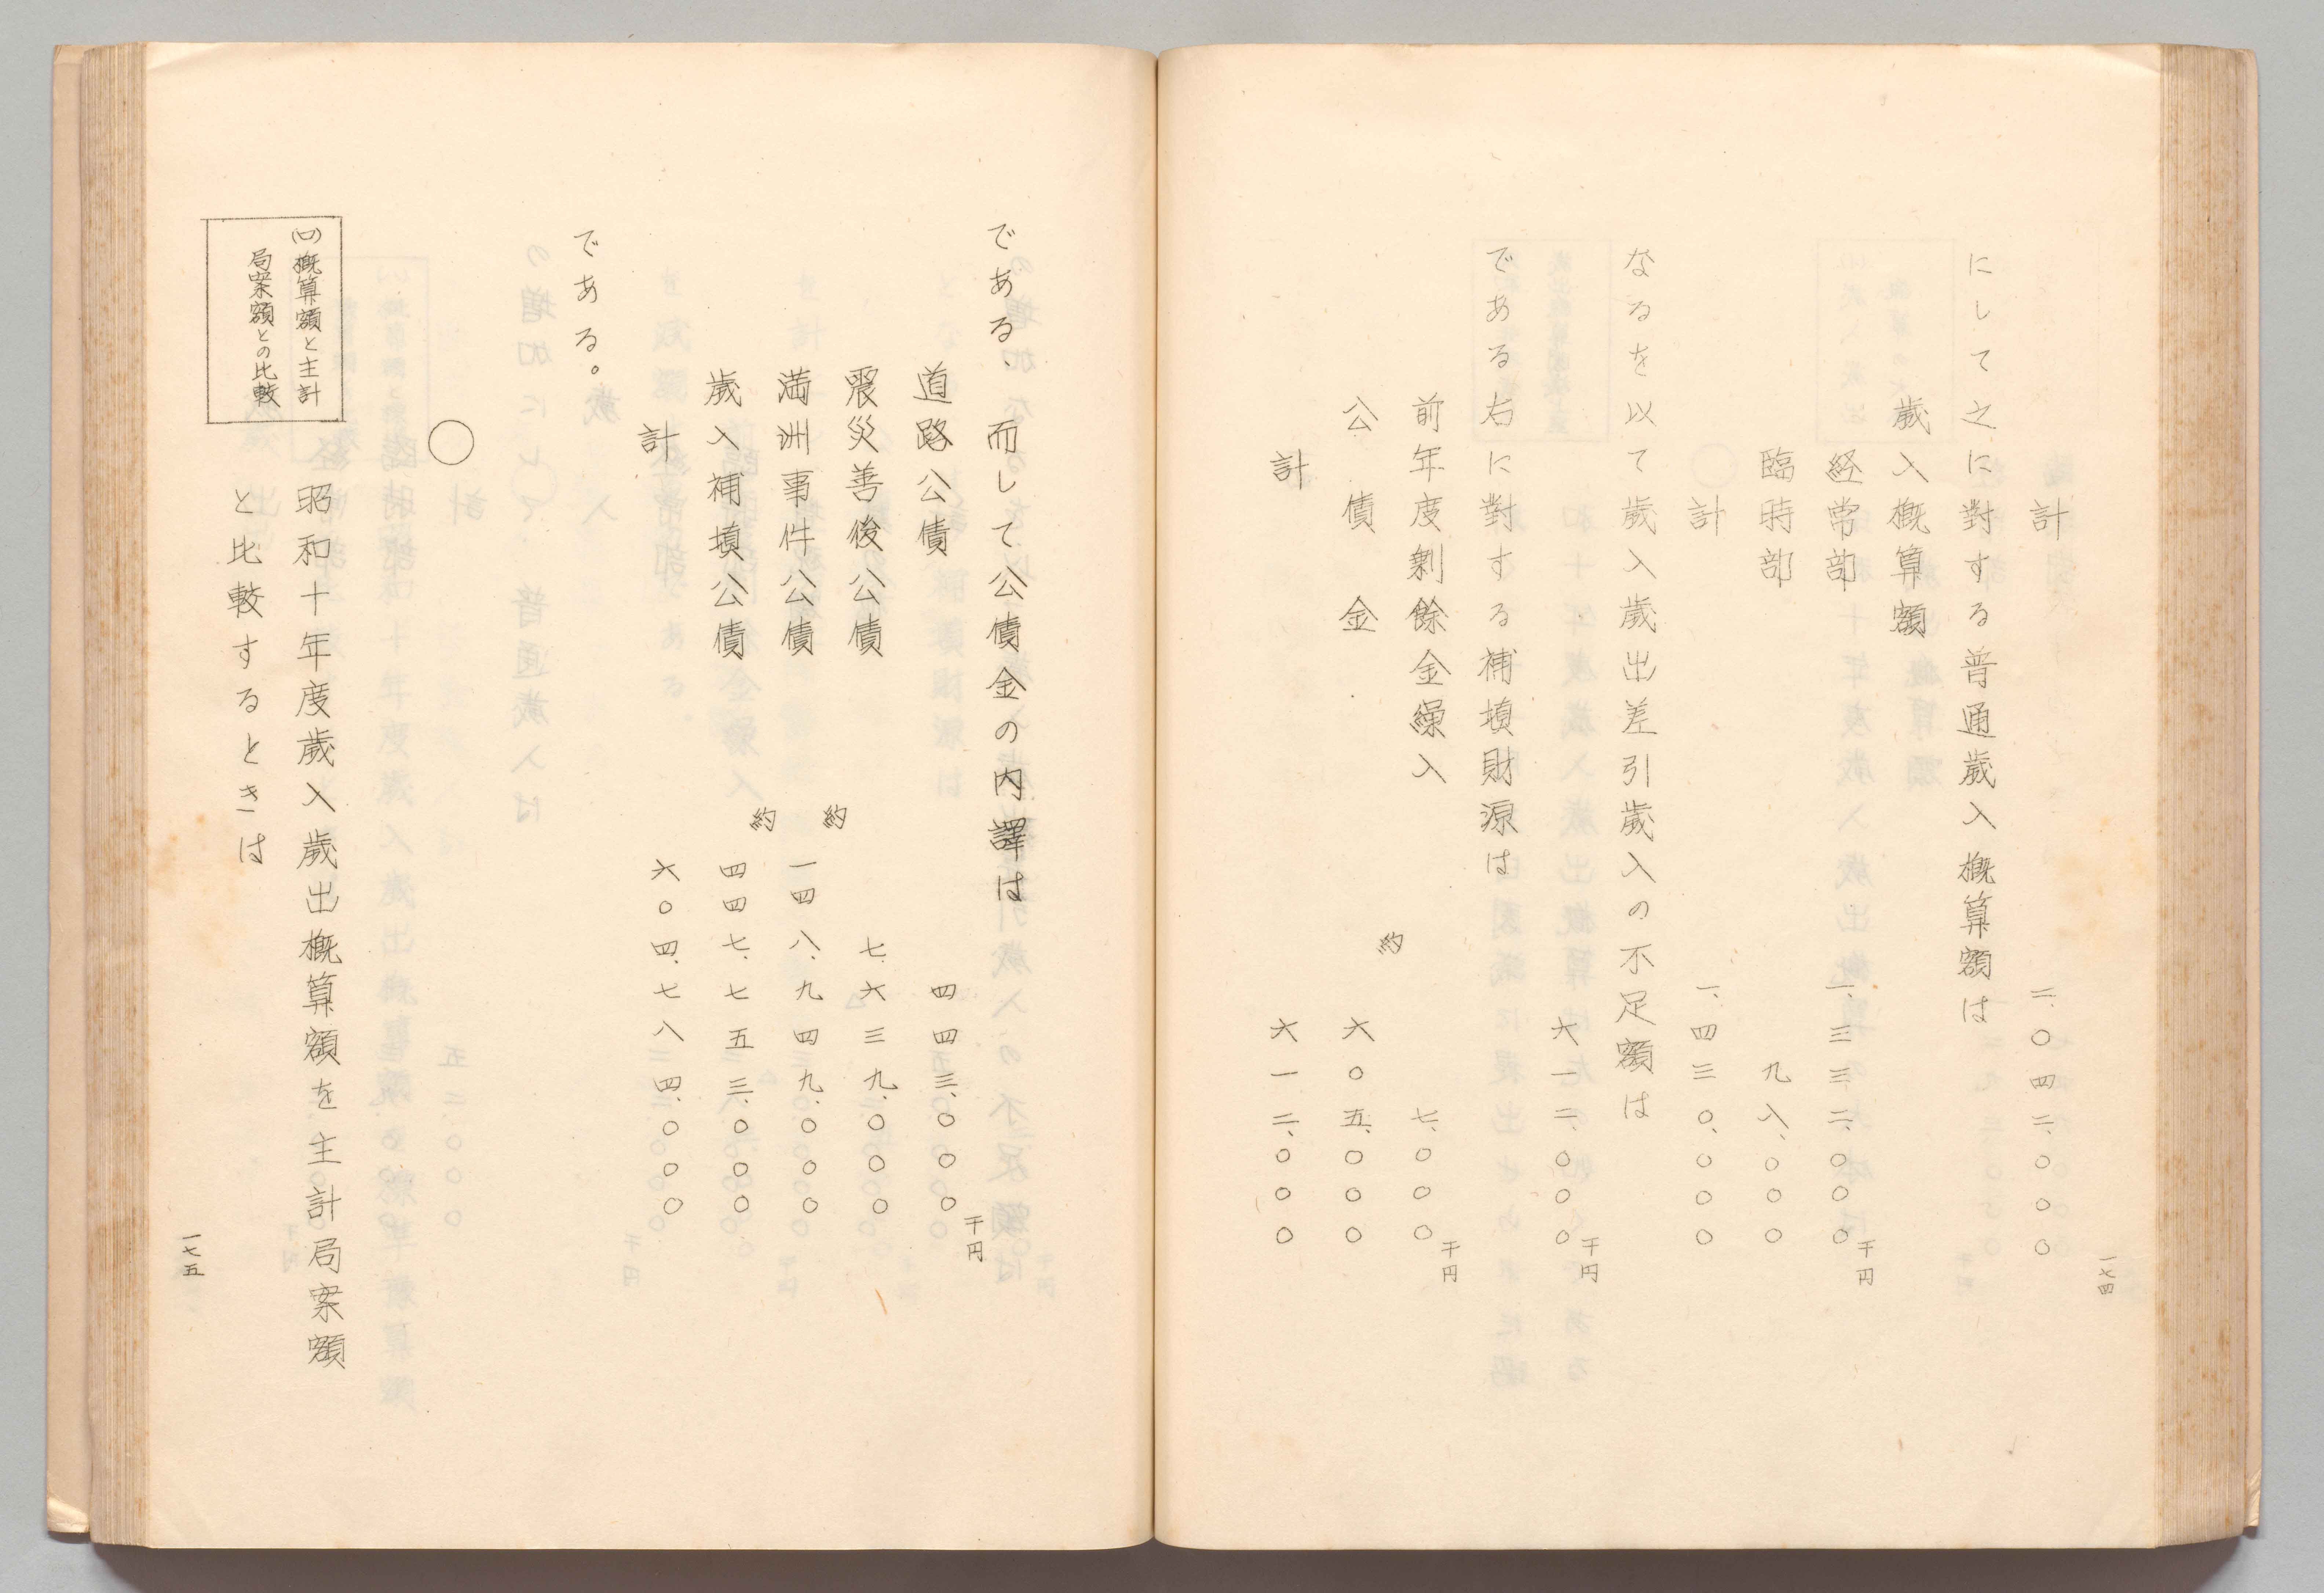 一七四
計 二、〇四二、〇〇〇
にして之に對する普通歲入概算額は
歲入概算額
経常部 一、三三二、〇〇〇千円
臨時部 九八、〇〇〇
計 一、四三〇、〇〇〇
なるを以て歲入歲出差引歲入の不足額は
六一二、〇〇〇千円
である右に對する補塡財源は
前年度剰餘金繰入 七、〇〇〇千円
公債金 約 六〇五、〇〇〇
計 六一二、〇〇〇
である、而して公債金の内譯は
道路公債 四四三、〇〇〇千円
震災善後公債 七、六三九、〇〇〇
満洲事件公債 約 一四八、九四九、〇〇〇
歲入補塡公債 約 四四七、七五三、〇〇〇
計 六〇四、七八四、〇〇〇
である。
〇
(ロ)概算額と主計
局案額との比較
昭和十年度歲入歲出概算額を主計局案額
と比較するときは
一七五